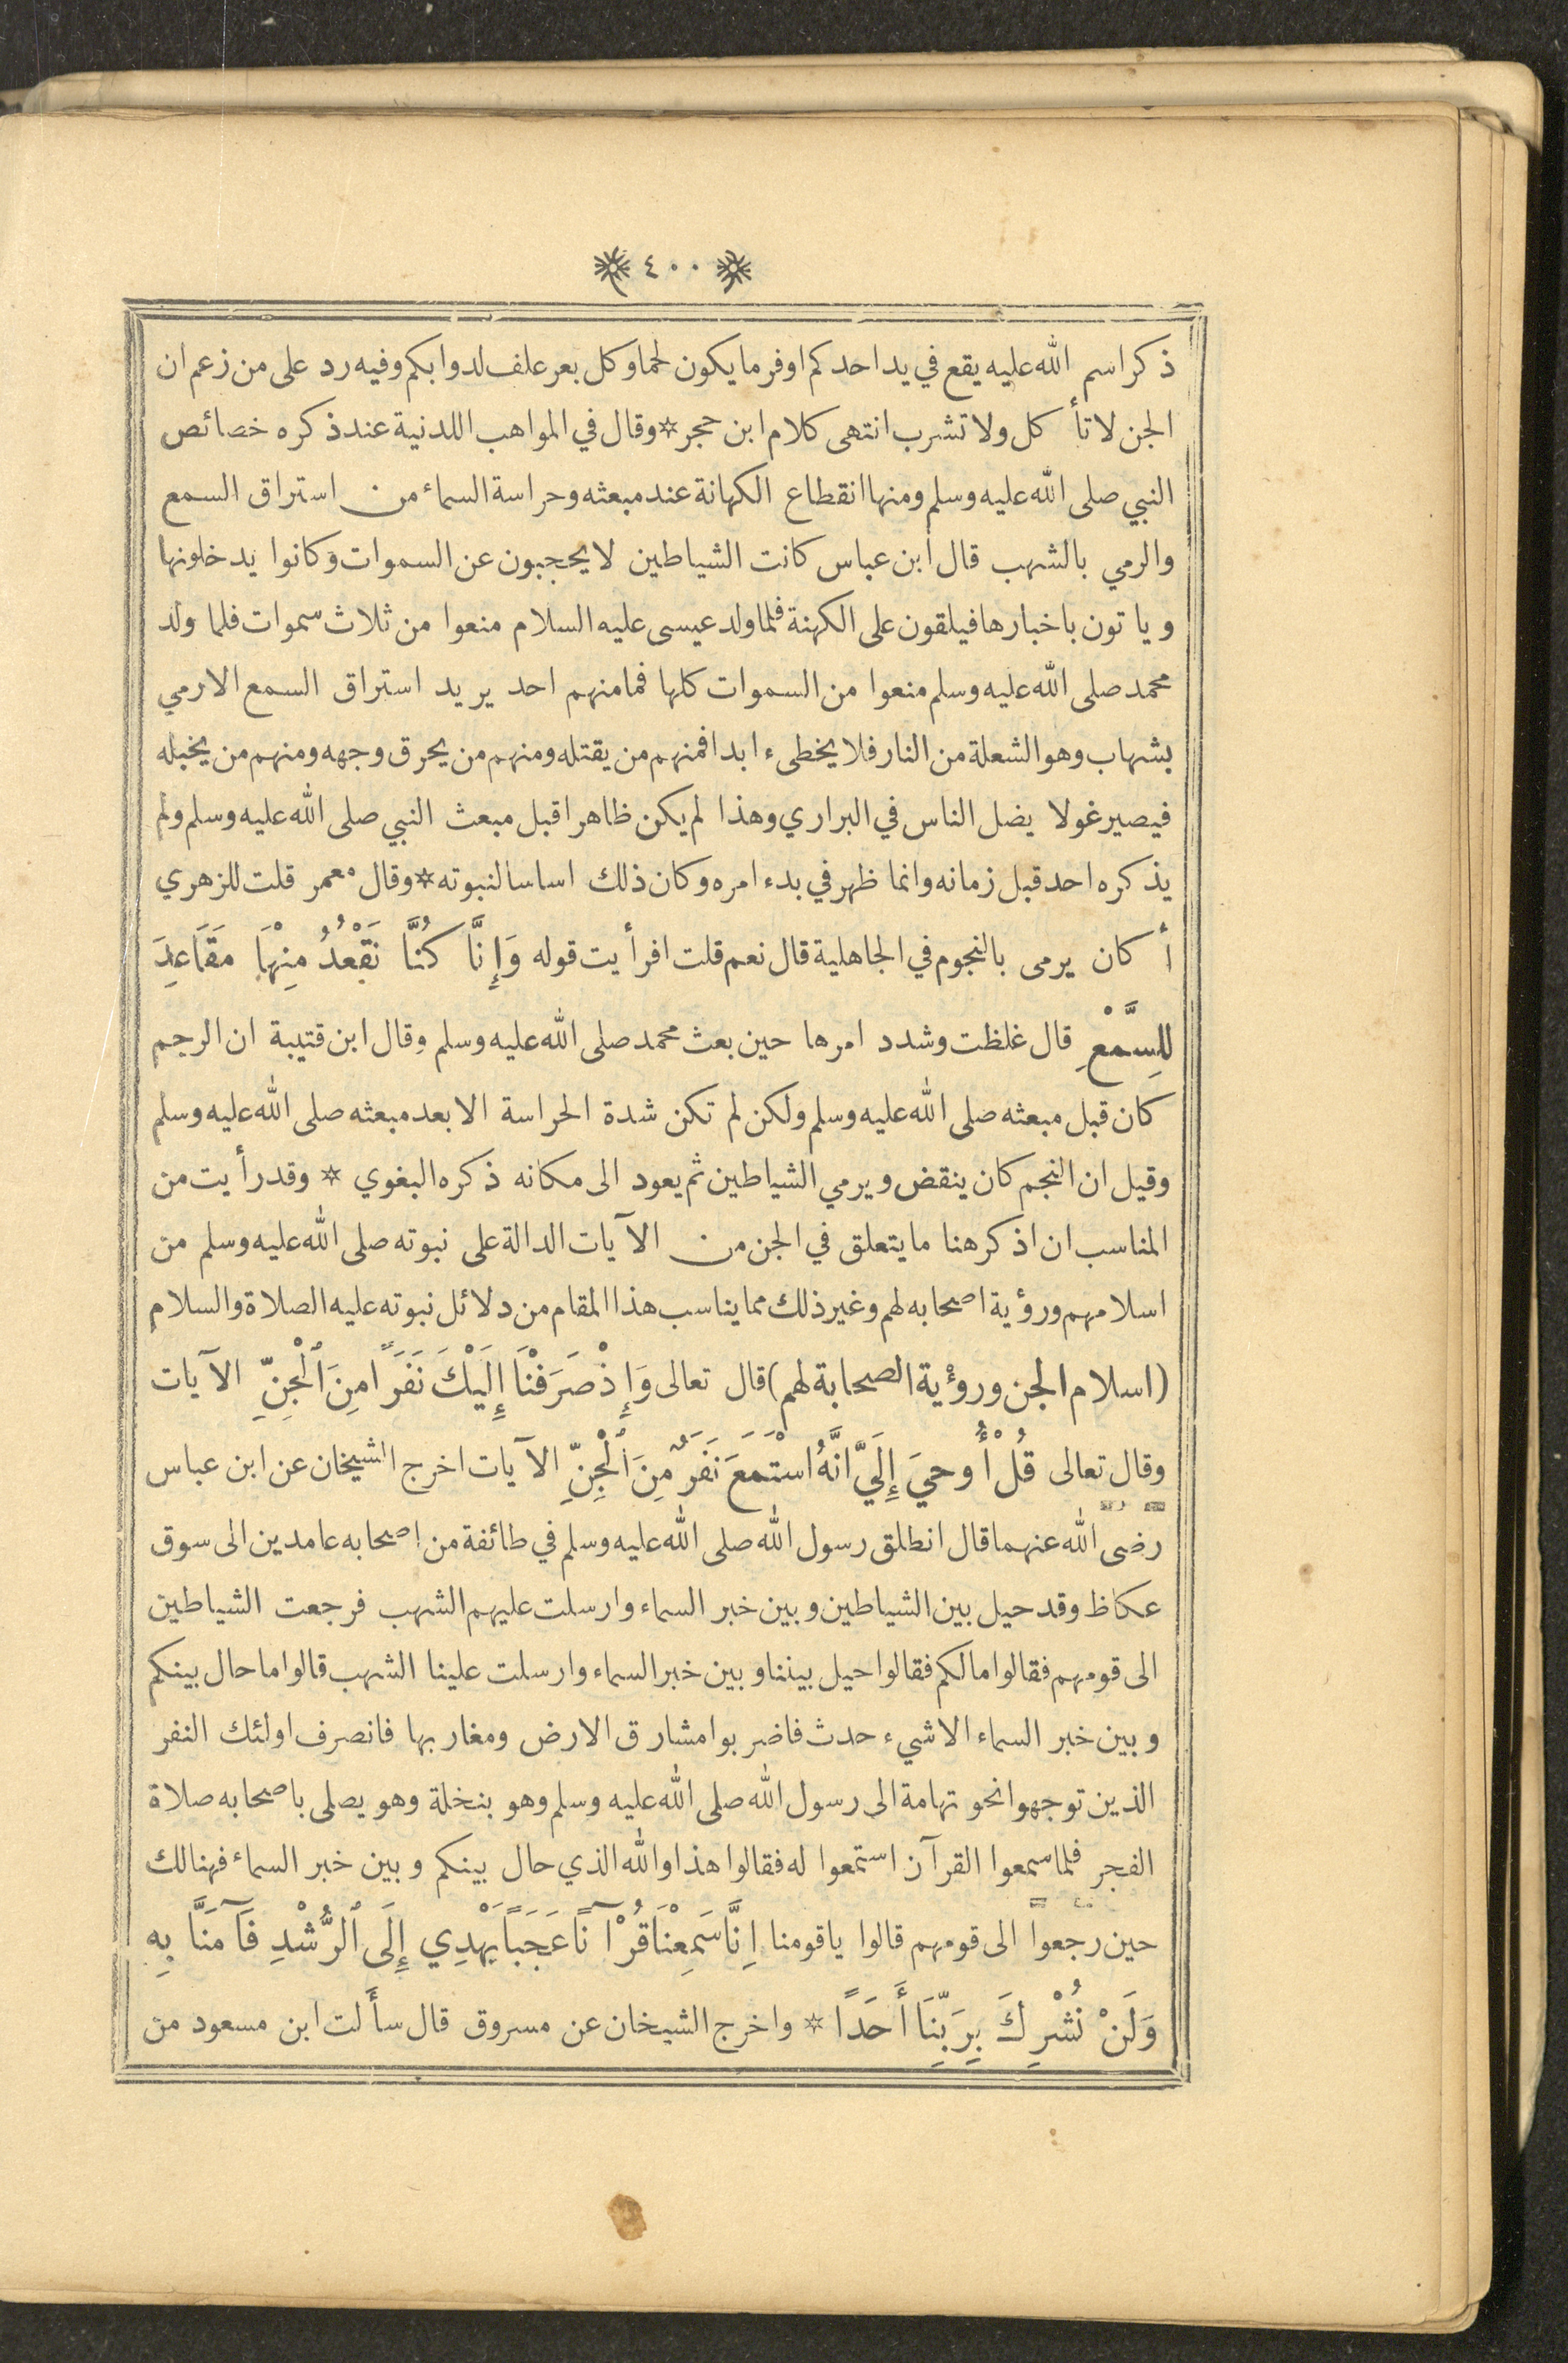 ٤٠٠
ذكر اسم الله عليه يقع في يد احدكم اوفر ما يكون لحما وكل بعر علف لدوابكم وفيه رد على من زعم ان
الجن لا تأكل ولا تشرب انتهى كلام ابن حجر * وقال في المواهب اللدنية عند ذكره خصائص
النبي صلى الله عليه وسلم ومنها انقطاع الكهانة عند مبعثه وحراسة السماء من استراق السمع
والرمي بالشهب قال ابن عباس كانت الشياطين لا يحجبون عن السموات وكانوا يدخلونها
وياتون باخبارها فيلقون على الكهنة فلما ولد عيسى عليه السلام منعوا من ثلاث سموات فلما ولد
محمد صلى الله عليه وسلم منعوا من السموات كلها فما منهم احد يريد استراق السمع الا رمي
بشهاب وهو الشعلة من النار فلا يخطىء ابدا فمنهم من يقتله ومنهم من يحرق وجهه ومنهم من يخبله
فيصير غولا يضل الناس في البراري وهذا لم يكن ظاهرا قبل مبعث النبي صلى الله عليه وسلم ولم
يذكره احد قبل زمانه وانما ظهر في بدء امره وكان ذلك اساسا لنبوته * وقال معمر قلت للزهري
أكان يرمى بالنجوم في الجاهلية قال نعم قلت افرأيت قوله وَإِنَّا كُنَّا نَقْعُدُ مِنْهَا مَقَاعِدَ
لِلسَّمْعِ قال غلظت وشدد امرها حين بعث محمد صلى الله عليه وسلم وقال ابن قتيبة ان الرجم
كان قبل مبعثه صلى الله عليه وسلم ولكن لم تكن شدة الحراسة الا بعد مبعثه صلى الله عليه وسلم
وقيل ان النجم كان ينقض ويرمي الشياطين ثم يعود الى مكانه ذكره البغوي * وقد رأيت من
المناسب ان اذكر هنا ما يتعلق في الجن من الآيات الدالة على نبوته صلى الله عليه وسلم من
اسلامهم ورؤية اصحابه لهم وغير ذلك مما يناسب هذا المقام من دلائل نبوته عليه الصلاة والسلام
(اسلام الجن ورؤية الصحابة لهم) قال تعالى وَإِذْ صَرَفْنَا إِلَيْكَ نَفَرًا مِنَ ٱلْجِنِّ الآيات
وقال تعالى قُلْ أُوحِيَ إِلَيَّ انَّهُ اسْتَمَعَ نَفَرٌ مِنَ ٱلْجِنِّ الآيات اخرج الشيخان عن ابن عباس
رضى الله عنهما قال انطلق رسول الله صلى الله عليه وسلم في طائفة من اصحابه عامدين الى سوق
عكاظ وقد حيل بين الشياطين وبين خبر السماء وارسلت عليهم الشهب فرجعت الشياطين
الى قومهم فقالوا مالكم فقالوا حيل بيننا وبين خبر السماء وارسلت علينا الشهب قالوا ما حال بينكم
وبين خبر السماء الا شيء حدث فاضربوا مشارق الارض ومغاربها فانصرف اولئك النفر
الذين توجهوا نحو تهامة الى رسول الله صلى الله عليه وسلم وهو بنخلة وهو يصلى باصحابه صلاة
الفجر فلما سمعوا القرآن استمعوا له فقالوا هذا والله الذي حال بينكم وبين خبر السماء فهنالك
حين رجعوا الى قومهم قالوا ياقومنا اِنَّا سَمِعْنَا قُرْآنًا عَجَبًا يَهْدِي إِلَى ٱلرُّشْدِ فَآمَنَّا بِهِ
وَلَنْ نُشْرِكَ بِرَبِّنَا أَحَدًا * واخرج الشيخان عن مسروق قال سألت ابن مسعود من